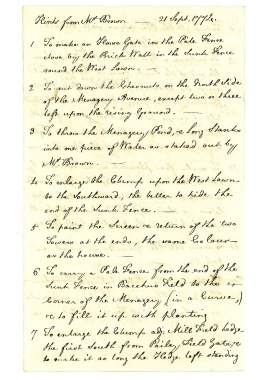 Hints from Mr. Brown. — 21 Sept. 1774.
1 To make an Hawe Gate in the Pale Fence
close by the Brick Wall in the Sunk Fence
round the West Lawn.
2 To cut down the Chesnuts on the North Side
of the Menagery Avenue, except two or three
left upon the rising Ground. —
3 To throw the Menagery Pond, & long Stanks
into one piece of Water as staked out by
Mr. Brown. —
4 To enlarge the Clump upon the West Lawn
to the Southward, the better to hide the
end of the Sunk Fence. —
5 To paint the Screen & return of the two
Towers at the ends, the same Colour
as the house.
6 To carry a Pale Fence from the end of the
Sunk Fence in Bacchus Field to the
corner of the Menagery (in a Curve,)
& to fill it up with planting
7 To enlarge the Clump adj. Mill Field Lodge
the first South from Pailey Field Gate, &
to make it as long the Hedge left standing